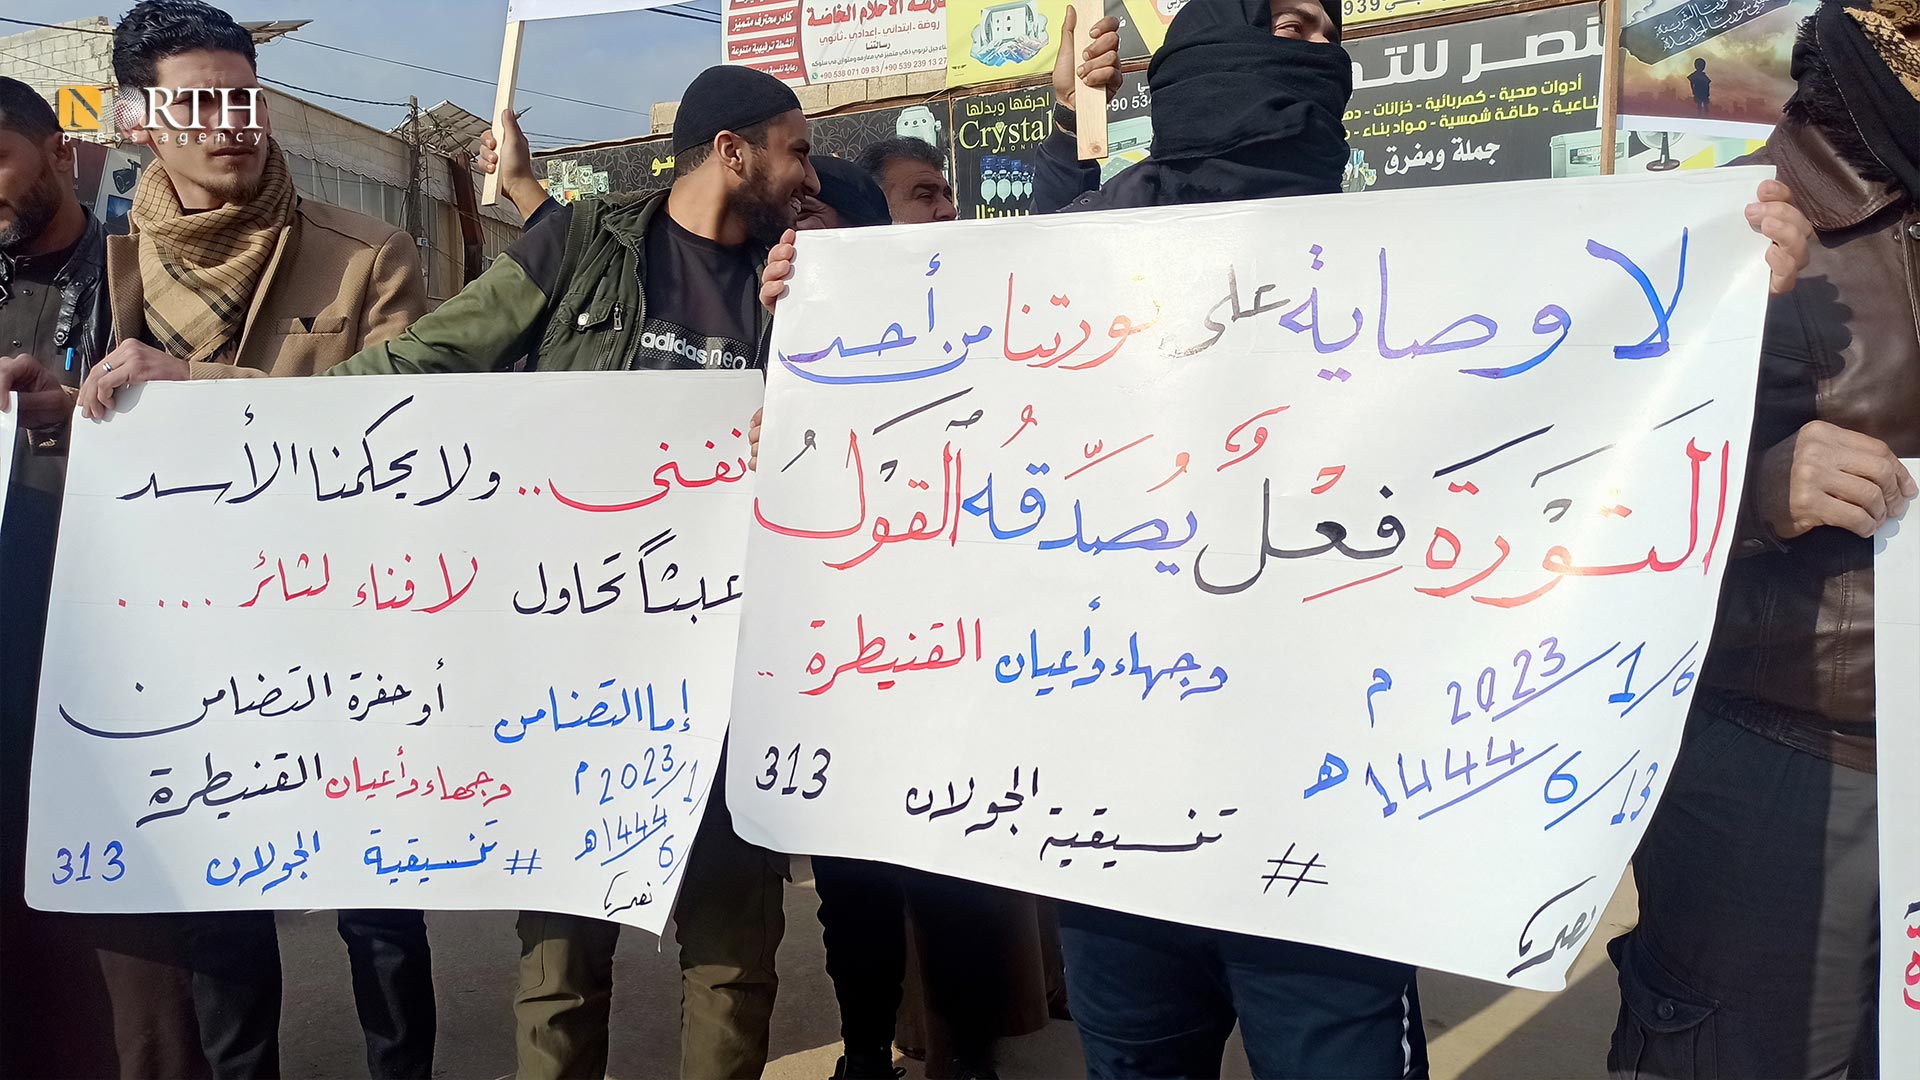 NORTH
press agency
مدرسة الأحلام الخاصة
روضة - ابتدائي - اعدادي - ثانوي
رسالتنا
كادر محترف متميز
أنشطة ترفيهية متنوعة
+90 538 071 09 83 / +90 539 239 13 27
احرقها وبدلها
Crystal
كريستال
أدوات صحية - كهربائية - خزانات
طاقة شمسية - مواد بناء
جملة ومفرق
adidas neo
لا وصاية على ثورتنا من أحد
الثَّوْرَةُ فِعْلٌ و يُصَدِّقُهُ القَوْلُ
وجهاء وأعيان القنيطرة ..
2023/1/6 م
1444/6/13 هـ
# تنسيقية الجولان 313
نصر
نفنى .. ولا يحكمنا الأسد
عبثاً تحاول لا فناء لثائر ....
إما التضامن أو حفرة التضامن
وجهاء وأعيان القنيطرة
2023/1/ م
1444/6/ هـ
# تنسيقية الجولان 313